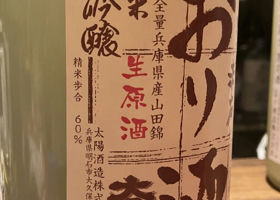 おり酒
全量兵庫県産山田錦
生原酒
米吟醸
精米歩合 60%
太陽酒造株式
兵庫県明石市大久保